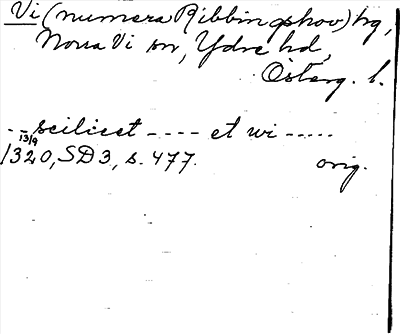 Vi (numera Ribbingshov) hg,
Norra Vi sn, Ydre hd,
Österg. l.
- - scilicet - - - - et wi - - - - -
13/9
1320, SD 3, s. 477. orig.